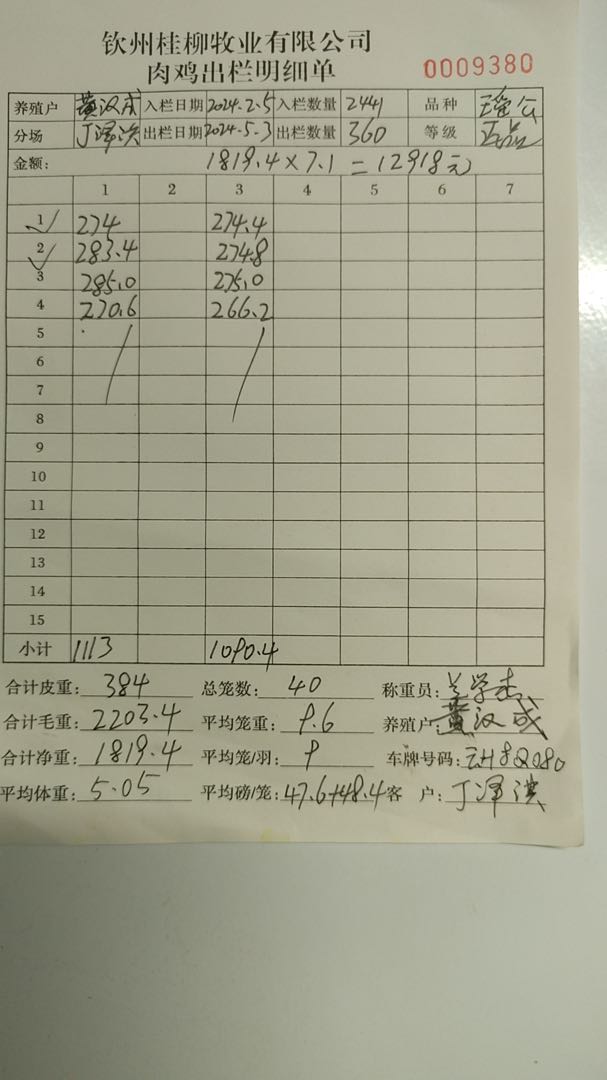 钦州桂柳牧业有限公司
肉鸡出栏明细单 0009380
养殖户 黄汉成 入栏日期 2024.2.5 入栏数量 2441 品种 瑶公
分场 丁泽洪 出栏日期 2024.5.3 出栏数量 360 等级 正品
金额: 1819.4×7.1=12918元
1 2 3 4 5 6 7
1 274 274.4
2 283.4 274.8
3 285.0 275.0
4 270.6 266.2
5
6
7
8
9
10
11
12
13
14
15
小计 1113 1090.4
合计皮重: 384 总笼数: 40 称重员: 兰学
合计毛重: 2203.4 平均笼重: 9.6 养殖户: 黄汉成
合计净重: 1819.4 平均笼/羽: 9 车牌号码:
平均体重: 5.05 平均磅/笼: 47.6+48.4 客 户: 丁泽洪